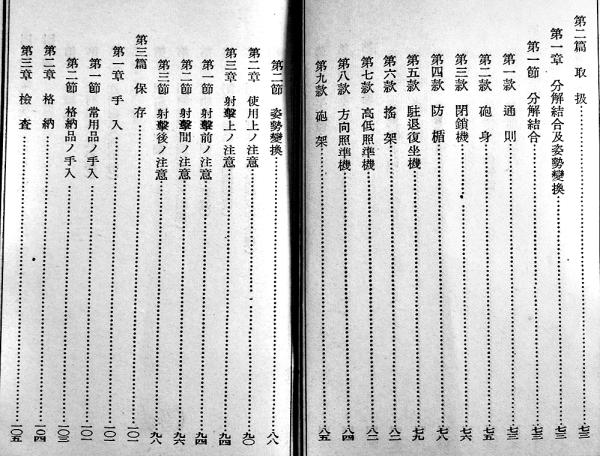 第二篇 取扱……七三
第一章 分解結合及姿勢變換……七三
第一節 分解結合……七三
第一款 通則……七三
第二款 砲身……七五
第三款 閉鎖機……七六
第四款 防楯……七八
第五款 駐退復坐機……七九
第六款 搖架……八二
第七款 高低照準機……八二
第八款 方向照準機……八四
第九款 砲架……八五
第二節 姿勢變換……八八
第二章 使用上ノ注意……九〇
第三章 射擊上ノ注意……九四
第一節 射擊前ノ注意……九四
第二節 射擊間ノ注意……九六
第三節 射擊後ノ注意……九八
第三篇 保存……一〇一
第一章 手入……一〇一
第一節 常用品ノ手入……一〇二
第二節 格納品ノ手入……一〇三
第二章 格納……一〇四
第三章 檢査……一〇五